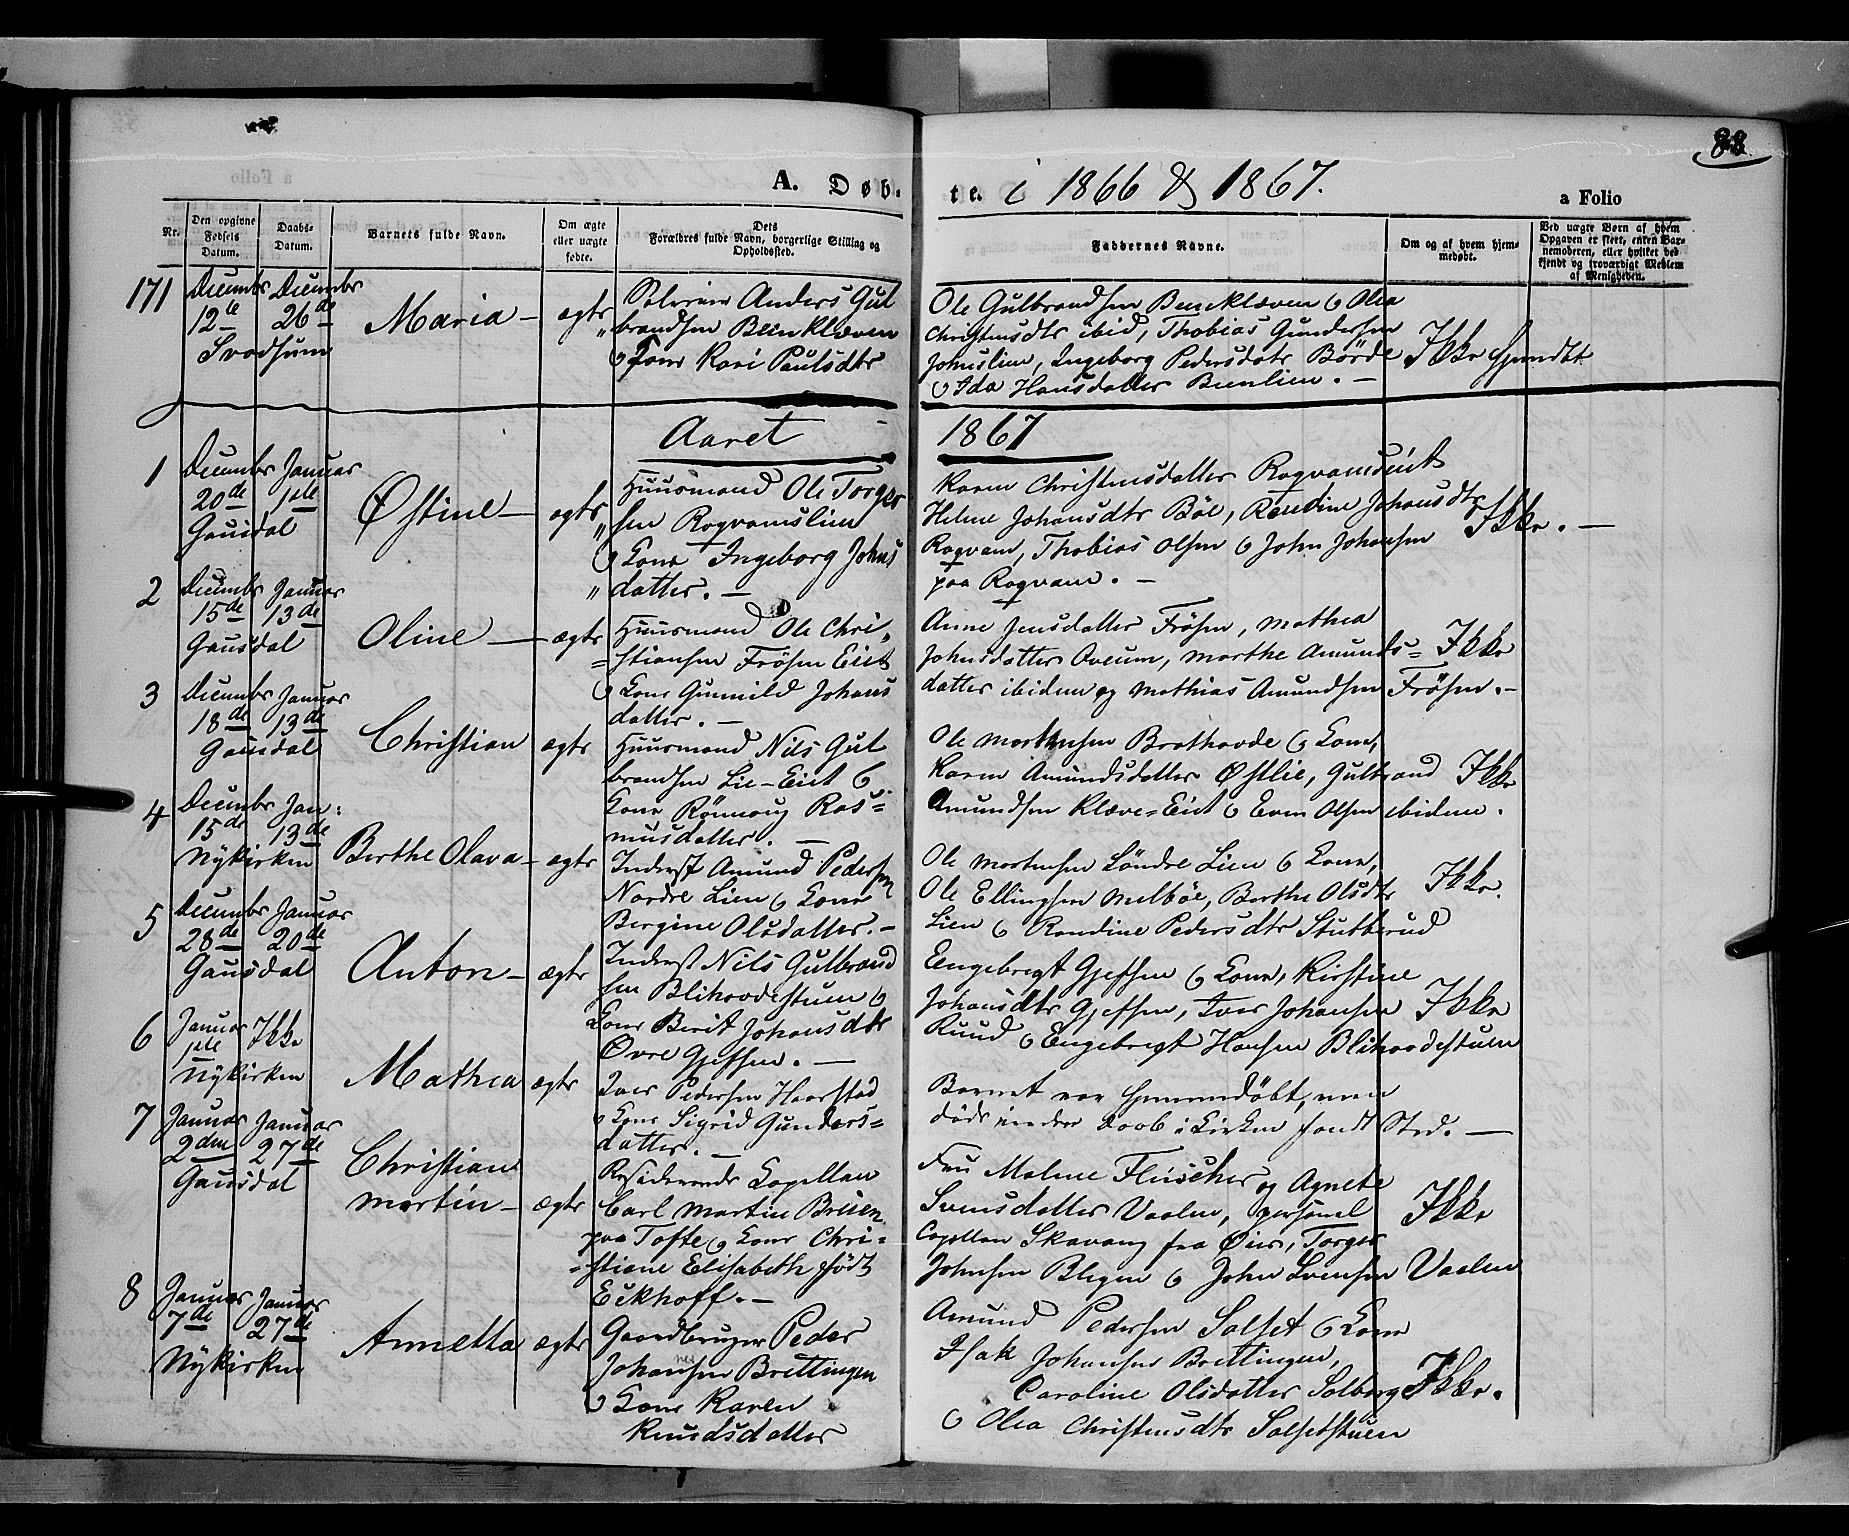 88
A. Døb-
te. i 1866 & 1867.
a Folio
Nr.
Den opgivne Fødsels Datum.
Daabs-Datum.
Barnets fulde Navn.
Om ægte eller uægte fødte.
Dets Forældres fulde Navn, borgerlige Stilling og Opholdssted.
Faddernes Navne.
Om og af hvem hjemmedøbt.
Ved uægte Børn af hvem Opgaven er skeet, enten Barnemoderen, eller hvilket bekjendt og troværdigt Medlem af Menigheden.
171
Decembr Decembr
12te 26de
Svadsum
Maria
ægte
Anders Gul
brandsen
Kone Kari Paulsdtr
Ole Gulbrandsen Olea
Christensdtr ibid, Thobias Gundersen
Ingeborg Pedersdatr
Ida Hansdatter
Ikke
Aaret 1867
1
Decembr Januar
20de 1ste
Gausdal
Østine
ægte
Huusmand Ole Torger
sen Rogvamslien
Kone Ingeborg Johns
datter.
Karen Christensdatter
Helene Johansdtr Böe, Johansdtr
Rogvam, Thobias Olsen John Johansen
paa Rogvam.
Ikke.
2
Decembr Januar
15de 13de
Gausdal
Oline
ægte
Huusmand Ole Chri-
stiansen Frösen Eiet
Kone Gunnild Johans
datter.
Anne Jensdatter Frösen, Mathea
Johnsdatter Marthe Amunds-
datter ibidem og Mathias Amundsen Frösen.
Ikke
3
Decembr Januar
18de 13de
Gausdal
Christian
ægte
Huusmand Nils Gul
brandsen Lie-Eiet
Kone Rönnaug Ras-
musdatter.
Ole Mortensen Kone,
Karen Amundsdatter Østlie, Gulbrand
Amundsen Klæve-Eiet Even Olsen ibidem.
Ikke
4
Decembr Jan:
15de 13de
Nykirken
Berthe Olava
ægte
Inderst Amund Pedersen
Nordre Lien Kone
Bergine Olsdatter.
Ole Mortensen Söndre Lien Kone,
Ole Ellingsen Melböe, Berthe Olsdtr
Lien Randine Pedersdtr Stubberud
Ikke.
5
Decembr Januar
28de 20de
Gausdal
Anton
ægte
Inderst Nils Gulbrand
sen
Kone Berit Johansdtr
Øvre Gjefsen.
Engebregt Gjefsen Kone, Kirstine
Johansdtr Gjefsen, Iver Johansen
Ruud Engebregt Hansen
Ikke
6
Januar Ikke
1ste
Nykirken
Mathea
ægte
Iver Pedersen Haarstad
Kone Sigrid Gunders-
datter.
Barnet var hjemmedöbt, men
döde inden Daab i Kirken fandt Sted.
7
Januar Januar
2den 27de
Gausdal
Christian
Martin
ægte
Residerende Capellan
Carl Martin Brisen
paa Tofte Kone Chri-
stiane Elisabeth född
Eckhoff.
Fru Malene Fleischer og Agnete
Svensdatter Vaalen, personel
Capellan Skavang fra Øier, Torger
Johnsen John Svensen Vaalen
Ikke
8
Januar Januar
7de 27de
Nykirken
Annetta
ægte
Gaardbruger Peder
Johansen Brettingen
Kone Karen
Knudsdatter
Amund Pedersen Solset Kone
Isak Johansen Brettingen,
Caroline Olsdatter Solberg
Olea Christensdtr Solsetstuen
Ikke.